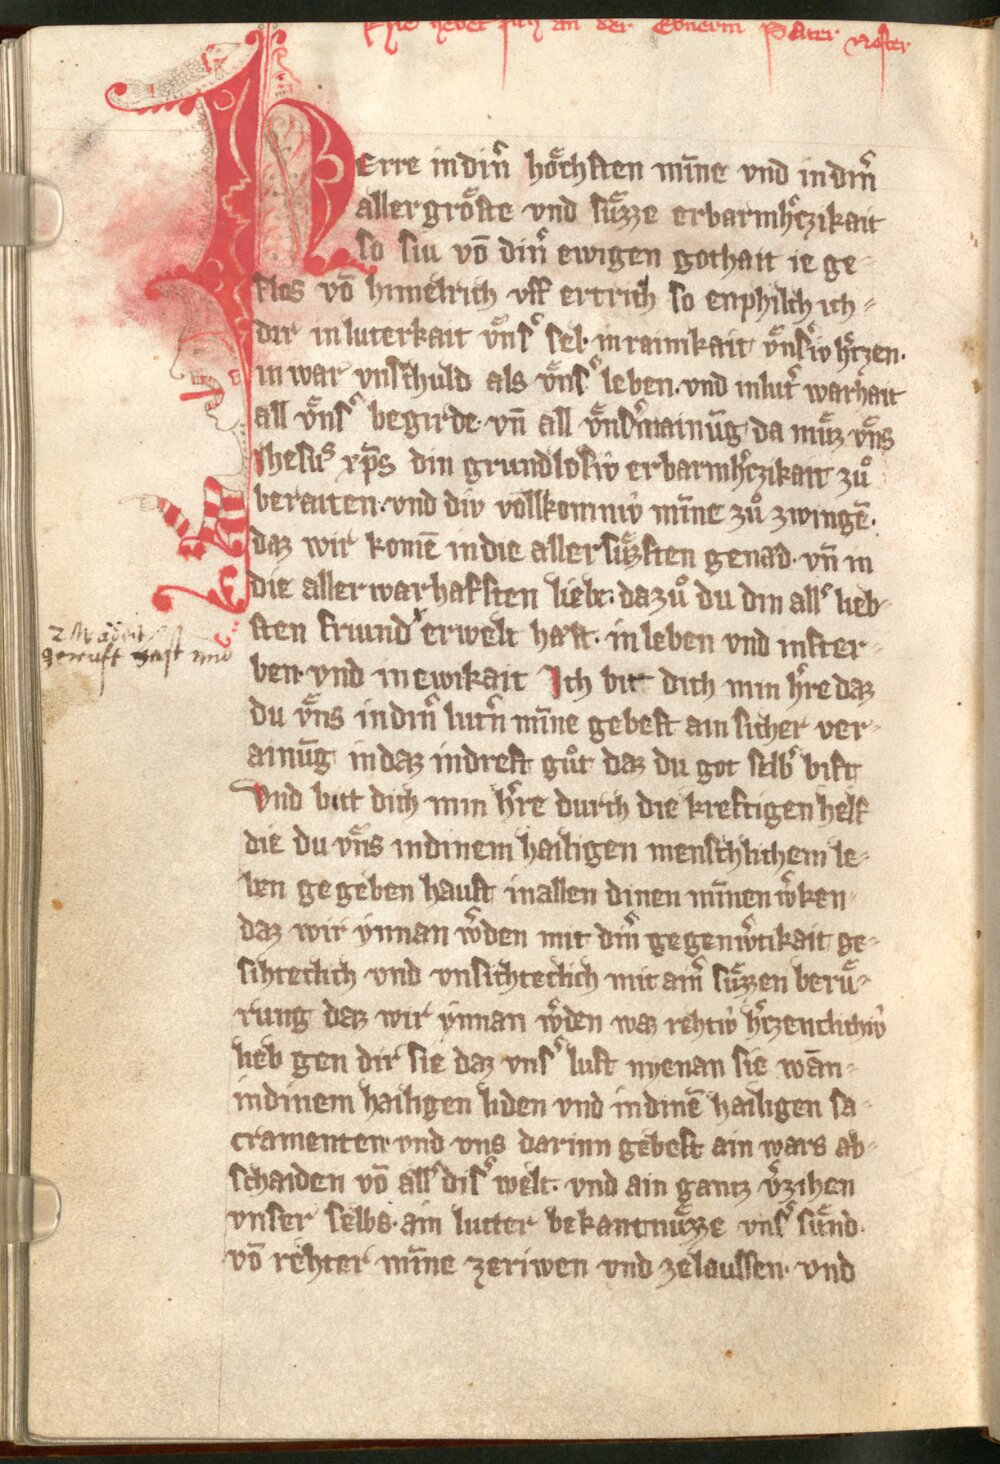 Hie hebet sich an der Ebnerin Pater noster
Herre in din̄ hoͤchsten min̄e vnd in din̄
aller groͤste vnd suͤzze erbarmhꝰczikait
so siu vō dinꝰ ewigen gothait ie ge-
flos vō himelrich vff ertrich so enphilch ich-
dir in luterkait vͤnsꝰ sel· in rainikait vͤnsꝰiv hꝰtzen·
in war vnschuld als vͤnsꝰ leben· vnd in lutꝰ warhait
all vͤnsꝰ begirde· vn̄ all vͤnsꝰ mainūg da muͤz vͤns
ihesus xp̄s din grundlosiv erbarmhꝰczikait zuͦ
beraiten· vnd div vollkomniv min̄e zuͦ zwingē·
daz wir komē in die aller suͤzsten genad· vn̄ in
die aller warhafsten liebe· da zuͦ du din allꝰ lieb-
sten friund erwelt hast· in leben vnd in ster-
2 Mader
geruft hast und
ben· vnd in ewikait Ich bit dich min hꝰre daz
du vͤns in din̄ lutꝰn min̄e gebest ain sicher ver-
ainūg in daz indrest guͦt daz du got selbꝰ bist
Vnd bitt dich min hꝰre durch die kreftigen helf
die du vͤns in dinem hailigen menschlichem le-
ben gegeben haust in allen dinen min̄en wꝰken-
daz wir ynnan wꝰden mit dinꝰ gegenwꝰtikait ge-
sihteclich vnd vnsichteclich mit ainꝰ suͤzzen beruͤ-
rung daz wir ynnan wꝰden waz rehtiv hꝰzenclichiv
lieb gen dir sie daz vnsꝰ lust nyenan sie wān-
in dinem hailigen liden vnd in dinē hailigen sa-
cramenten· vnd vns darinn gebest ain wars ab-
schaiden vō allꝰ disꝰ welt· vnd ain gantz vꝰzihen
vnser selbs· ain lutter bekantnuͤzze vnsꝰ suͤnd·
vō rehter min̄e zeriwen vnd zelaussen· vnd